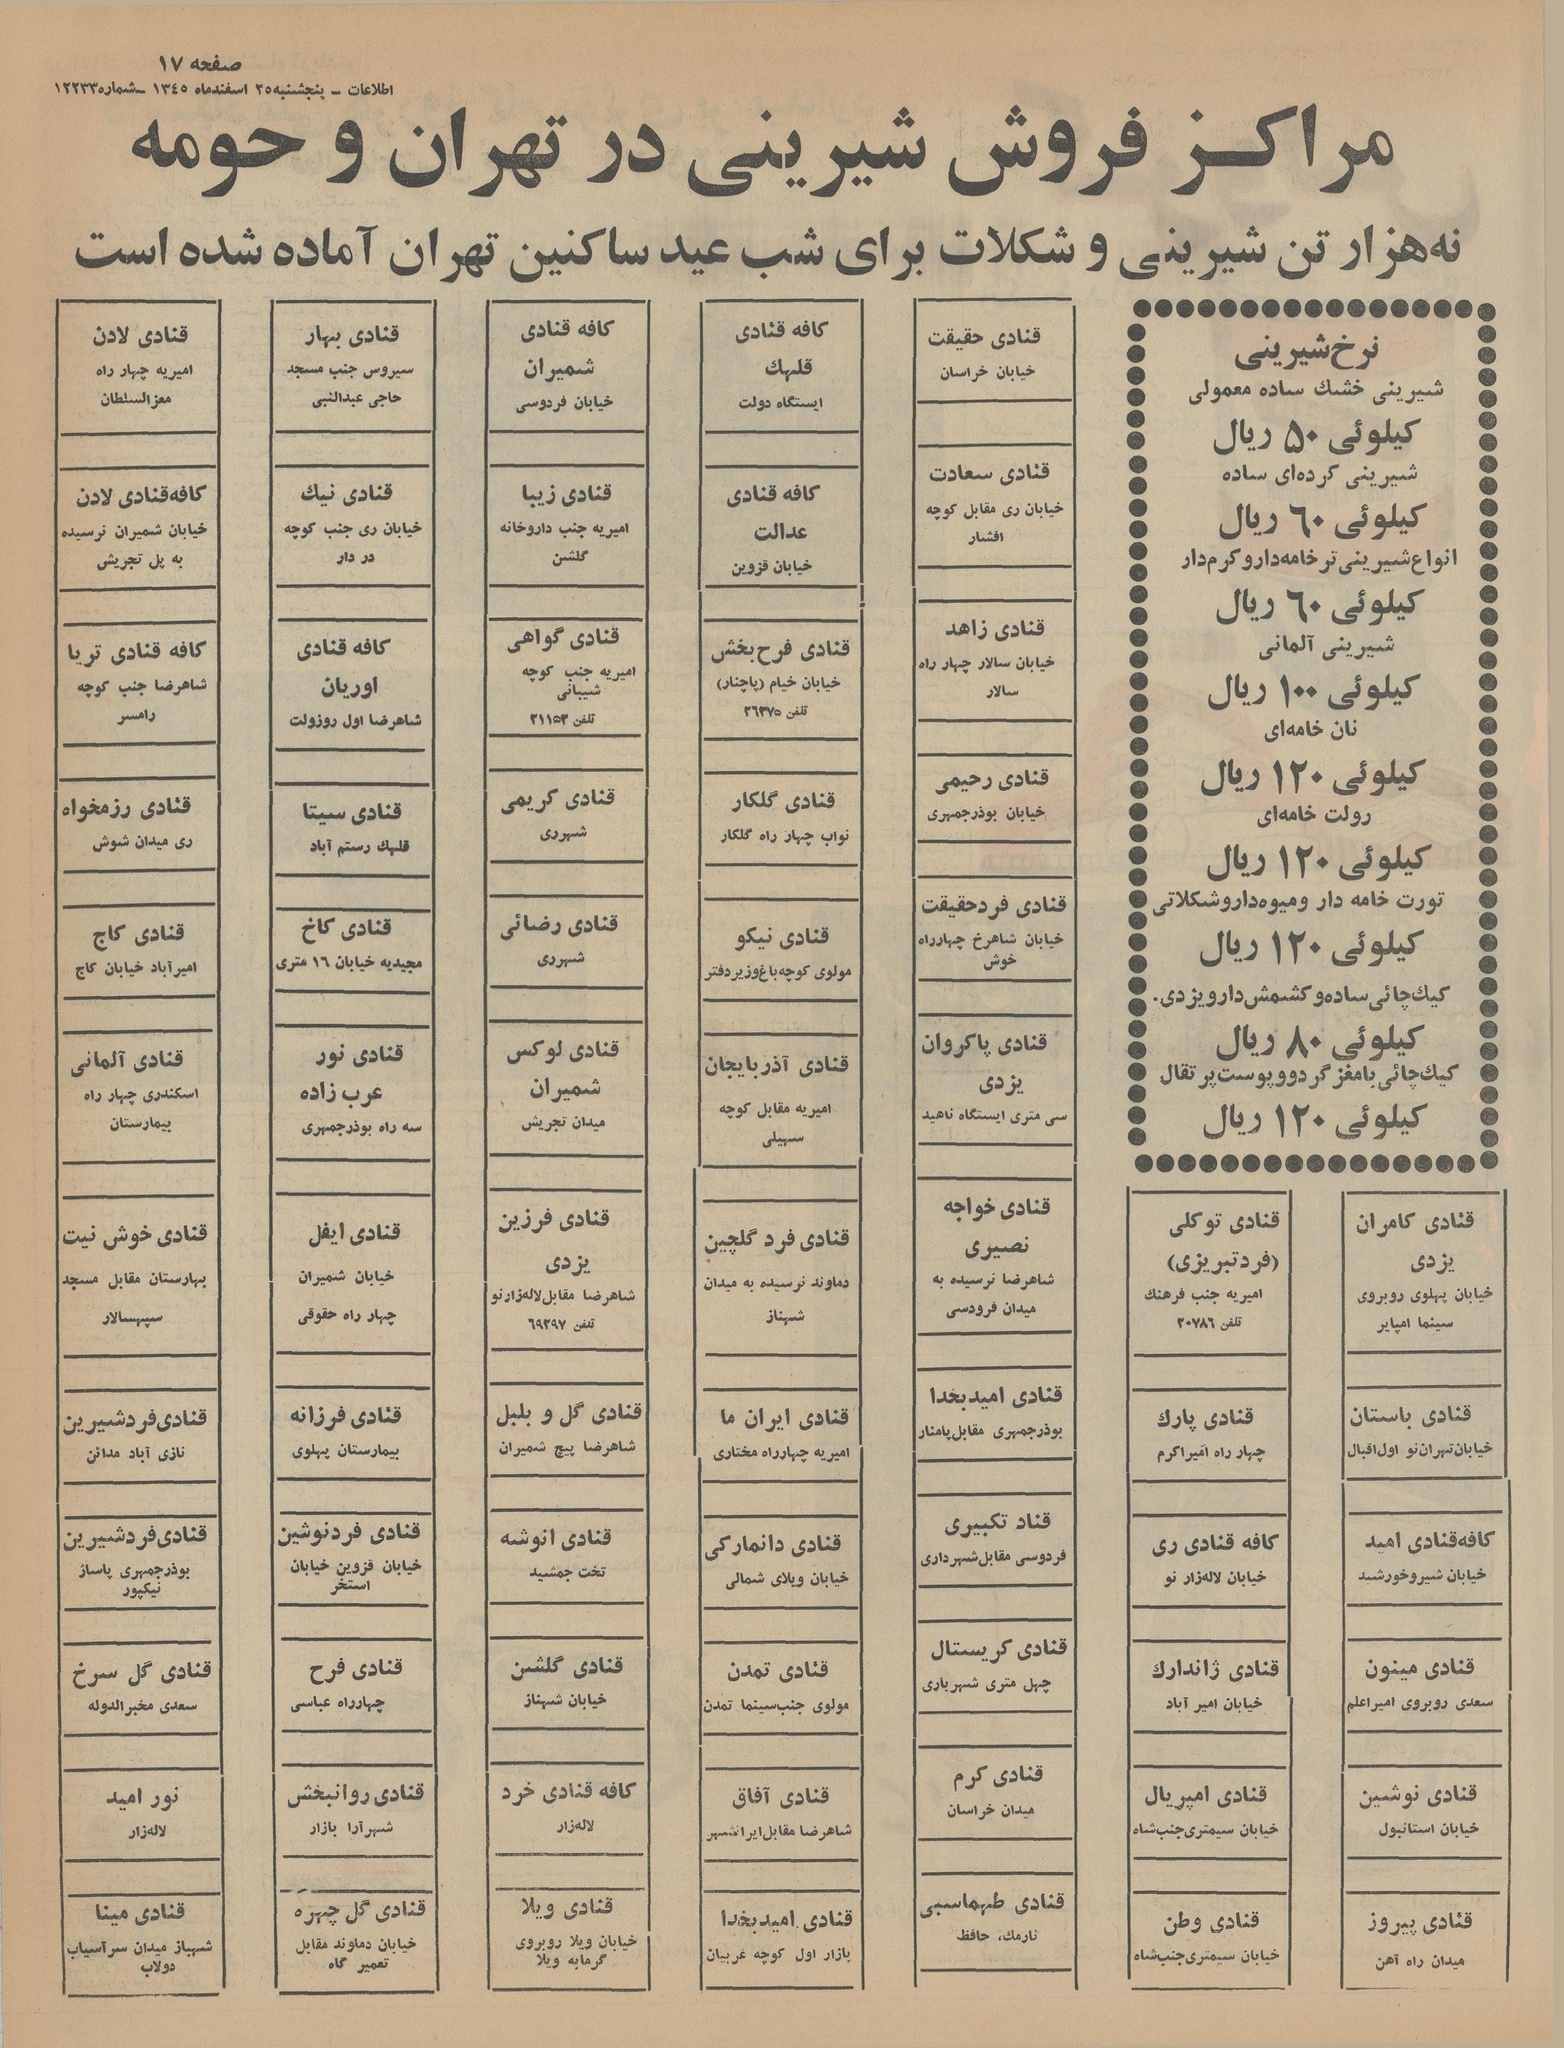 صفحه ۱۷
اطلاعات ـ پنجشنبه ۲۵ اسفندماه ۱۳٤۵ ـ شماره ۱۲۲۳۳
مراکز فروش شیرینی در تهران و حومه
نه‌هزار تن شیرینی و شکلات برای شب عید ساکنین تهران آماده شده است
نرخ شیرینی
شیرینی خشك ساده معمولی
کیلوئی ۵۰ ریال
شیرینی کرده‌ای ساده
کیلوئی ٦۰ ریال
انواع شیرینی تر خامه‌دار و کرم‌دار
کیلوئی ٦۰ ریال
شیرینی آلمانی
کیلوئی ۱۰۰ ریال
نان خامه‌ای
کیلوئی ۱۲۰ ریال
رولت خامه‌ای
کیلوئی ۱۲۰ ریال
تورت خامه دار و میوه‌دار و شکلاتی
کیلوئی ۱۲۰ ریال
کیك چائی ساده و کشمش دار و یزدی.
کیلوئی ۸۰ ریال
کیك چائی با مغز گردو و پوست پرتقال
کیلوئی ۱۲۰ ریال
قنادی کامران
یزدی
خیابان پهلوی روبروی
سینما امپایر
قنادی باستان
خیابان تهران‌نو اول اقبال
کافه قنادی امید
خیابان شیر و خورشید
قنادی مینون
سعدی روبروی امیراعلم
قنادی نوشین
خیابان استانبول
قنادی پیروز
میدان راه آهن
قنادی توکلی
(فرد تبریزی)
امیریه جنب فرهنك
تلفن ۲۰۷۸٦
قنادی پارك
چهار راه امیراکرم
کافه قنادی ری
خیابان لاله‌زار نو
قنادی ژاندارك
خیابان امیر آباد
قنادی امپریال
خیابان سیمتری جنب شاه
قنادی وطن
خیابان سیمتری جنب شاه
قنادی حقیقت
خیابان خراسان
قنادی سعادت
خیابان ری مقابل کوچه
افشار
قنادی زاهد
خیابان سالار چهار راه
سالار
قنادی رحیمی
خیابان بوذرجمهری
قنادی فرد حقیقت
خیابان شاهرخ چهارراه
خوش
قنادی پاکروان
یزدی
سی متری ایستگاه ناهید
قنادی خواجه
نصیری
شاهرضا نرسیده به
میدان فرودسی
قنادی امید بخدا
بوذرجمهری مقابل پامنار
قناد تکبیری
فردوسی مقابل شهرداری
قنادی کریستال
چهل متری شهریاری
قنادی کرم
میدان خراسان
قنادی طهماسبی
نارمك، حافظ
کافه قنادی
قلهك
ایستگاه دولت
کافه قنادی
عدالت
خیابان قزوین
قنادی فرح بخش
خیابان خیام (پاچنار)
تلفن ۲٦۳۷۵
قنادی گلکار
نواب چهار راه گلکار
قنادی نیکو
مولوی کوچه باغ وزیر دفتر
قنادی آذربایجان
امیریه مقابل کوچه
سهیلی
قنادی فرد گلچین
دماوند نرسیده به میدان
شهناز
قنادی ایران ما
امیریه چهارراه مختاری
قنادی دانمارکی
خیابان ویلای شمالی
قنادی تمدن
مولوی جنب سینما تمدن
قنادی آفاق
شاهرضا مقابل ایرانشهر
قنادی امید بخدا
بازار اول کوچه غریبان
کافه قنادی
شمیران
خیابان فردوسی
قنادی زیبا
امیریه جنب داروخانه
گلشن
قنادی گواهی
امیریه جنب کوچه
شیبانی
تلفن ۲۱۱۵۳
قنادی کریمی
شهرری
قنادی رضائی
شهرری
قنادی لوکس
شمیران
میدان تجریش
قنادی فرزین
یزدی
شاهرضا مقابل لاله‌زار نو
تلفن ٦۹۲۹۷
قنادی گل و بلبل
شاهرضا پیچ شمیران
قنادی انوشه
تخت جمشید
قنادی گلشن
خیابان شهناز
کافه قنادی خرد
لاله‌زار
قنادی ویلا
خیابان ویلا روبروی
گرمابه ویلا
قنادی بهار
سیروس جنب مسجد
حاجی عبدالنبی
قنادی نیك
خیابان ری جنب کوچه
در دار
کافه قنادی
اوریان
شاهرضا اول روزولت
قنادی سیتا
قلهك رستم آباد
قنادی کاخ
مجیدیه خیابان ۱٦ متری
قنادی نور
عرب زاده
سه راه بوذرجمهری
قنادی ایفل
خیابان شمیران
چهار راه حقوقی
قنادی فرزانه
بیمارستان پهلوی
قنادی فرد نوشین
خیابان قزوین خیابان
استخر
قنادی فرح
چهارراه عباسی
قنادی روانبخش
شهرآرا بازار
قنادی گل چهره
خیابان دماوند مقابل
تعمیر گاه
قنادی لادن
امیریه چهار راه
معزالسلطان
کافه قنادی لادن
خیابان شمیران نرسیده
به پل تجریش
کافه قنادی تریا
شاهرضا جنب کوچه
رامسر
قنادی رزمخواه
ری میدان شوش
قنادی کاج
امیرآباد خیابان کاج
قنادی آلمانی
اسکندری چهار راه
بیمارستان
قنادی خوش نیت
بهارستان مقابل مسجد
سپهسالار
قنادی فرد شیرین
نازی آباد مدائن
قنادی فرد شیرین
بوذرجمهری پاساژ
نیکپور
قنادی گل سرخ
سعدی مخبرالدوله
نور امید
لاله‌زار
قنادی مینا
شهباز میدان سرآسیاب
دولاب